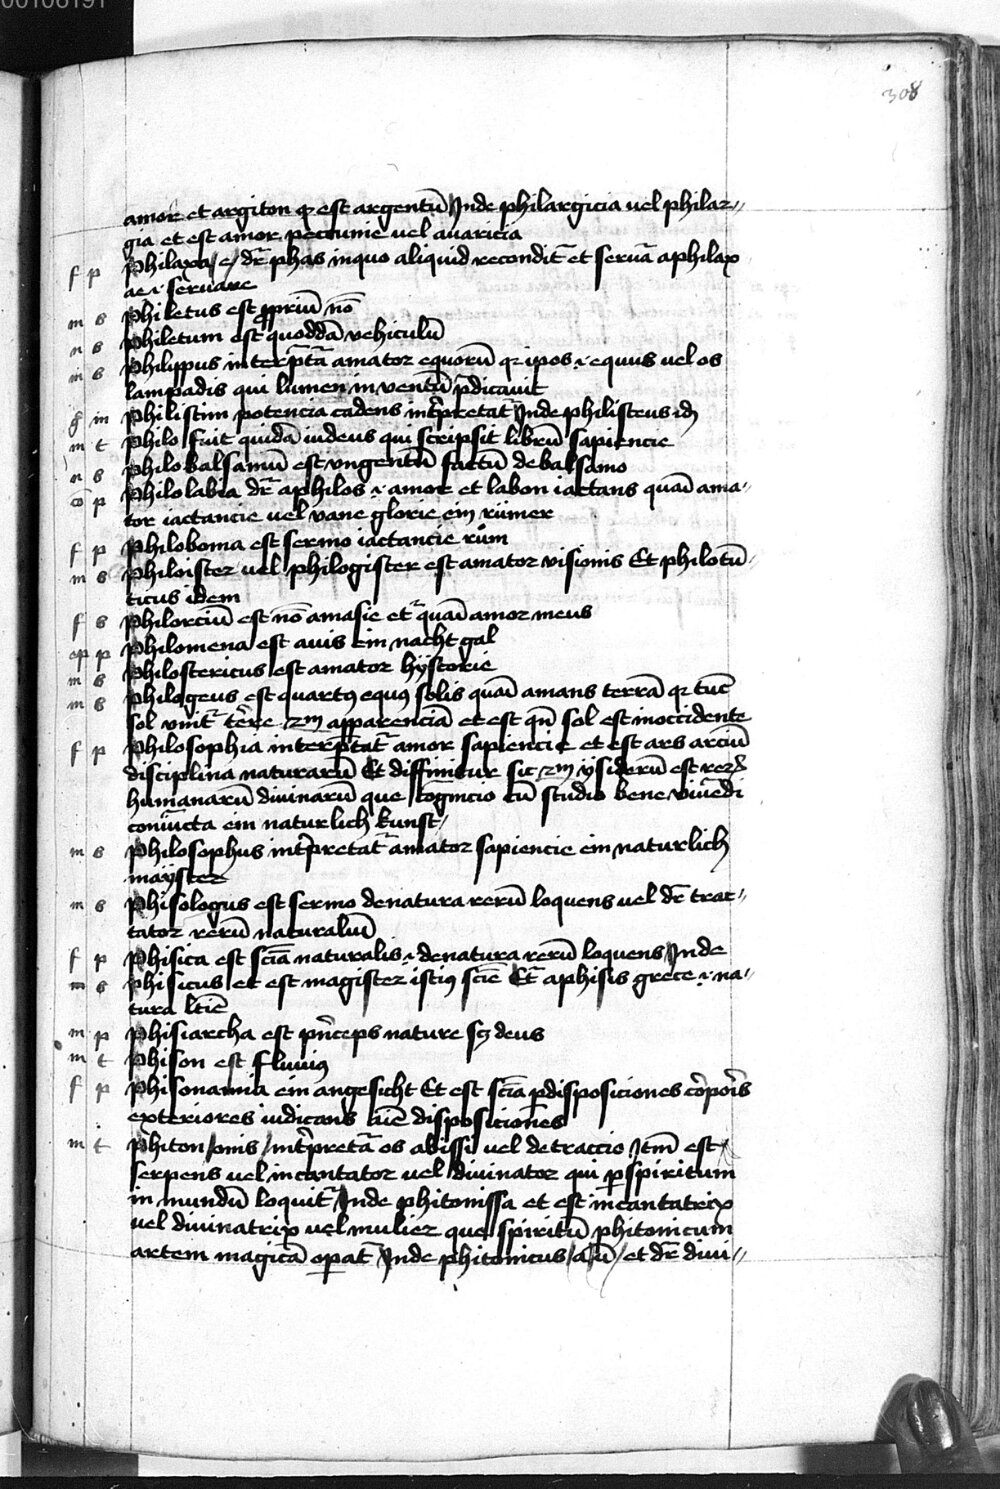 00106191
308
amor et argiton qr est argentū Inde philargicia uel philar〃
gia et est amor peccunie uel auaricia
f p Philaxa / e / dr̄ phas inquo aliquid recondit̄ et seruā a philax
ac .i. seruare
m s Philetus est ꝓprium nō
n s Philetum est quoddā vehiculū
m s Philippus interp̄tā amator equorū qr ipos .i. equus uel os
lampadis qui lumen inuentū p̄dicauit
g̅ m Philistim potencia cadens int̄pretat̄ Inde philisteus idē
m t Philo fuit quidā iudeus qui scripsit librū sapiencie
n s Philobalsamū est vngentū factū de balsamo
cō p Philolabia dr̄ a philos .i. amor et labon iactans quasi ama〃
tor iactancie uel vane glorie ein rümer
f p Philoboma est sermo iactancie rům
m s Philoister uel philogister est amator visionis Et philotū〃
ticus idem
f s Philorciūm est nō amasie et quasi amor meus
ep p Philomena est auis ein nachtgal
m s Philostericus est amator hystorie
m s Philogeus est quartꝰ equꝰ solis quasi amans terrā qr tūc
sol vnit̄ terre 2m apparenciā et est qn̄ sol est in occidente
f p Philosophia interp̄tat̄ amor sapiencie et est ars arciū
disciplina naturarū Et diffinitur sic 2m ysiderū est reꝝ
humanarū diuinarū que cognicio cū studio bene viuēdi
coniūcta ein naturlich kunst /
m s Philosophus int̄pretat̄ amator sapiencie ein naturlich
mayster
m s Phisologus est sermo de natura rerū loquens uel dr̄ trac〃
tator rerū naturaliū
f p Phisica est sciā naturalis .i. de natura rerū loquens Inde
m s phisicus et est magister istiꝰ scīe Et̄ a phisis grece .i. na〃
tura ltīe
m p Phisiarcha est p̄nceps nature sꝫ deus
m t Phison est fluuiꝰ
f p Phisonamia ein angesicht Et est sciā p̱ disposiciones corporis
exteriores iudicans aīe disposiciones
m t phiton / onis / int̄pretā os abissi uel detraccio Itm̄ est
serpens uel incantator uel diuinator qui p̱ spiritum
in mundū loquit̄ Inde phitonissa et est incantatrix
uel diuinatrix uel mulier que spiritū phitonicum
artem magicā operat̄ Inde phitonicus / a / ū / et dr̄ diui〃